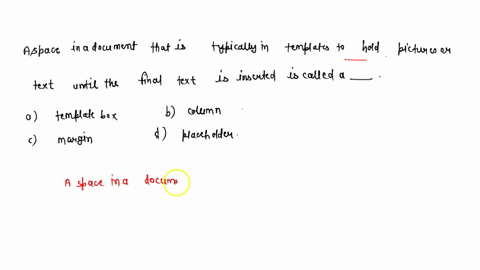 A space in a document that is typically in templates to hold pictures or
text until the final text is inserted is called a ___.
a) template box b) column
c) margin d) placeholder.
A space in a docum